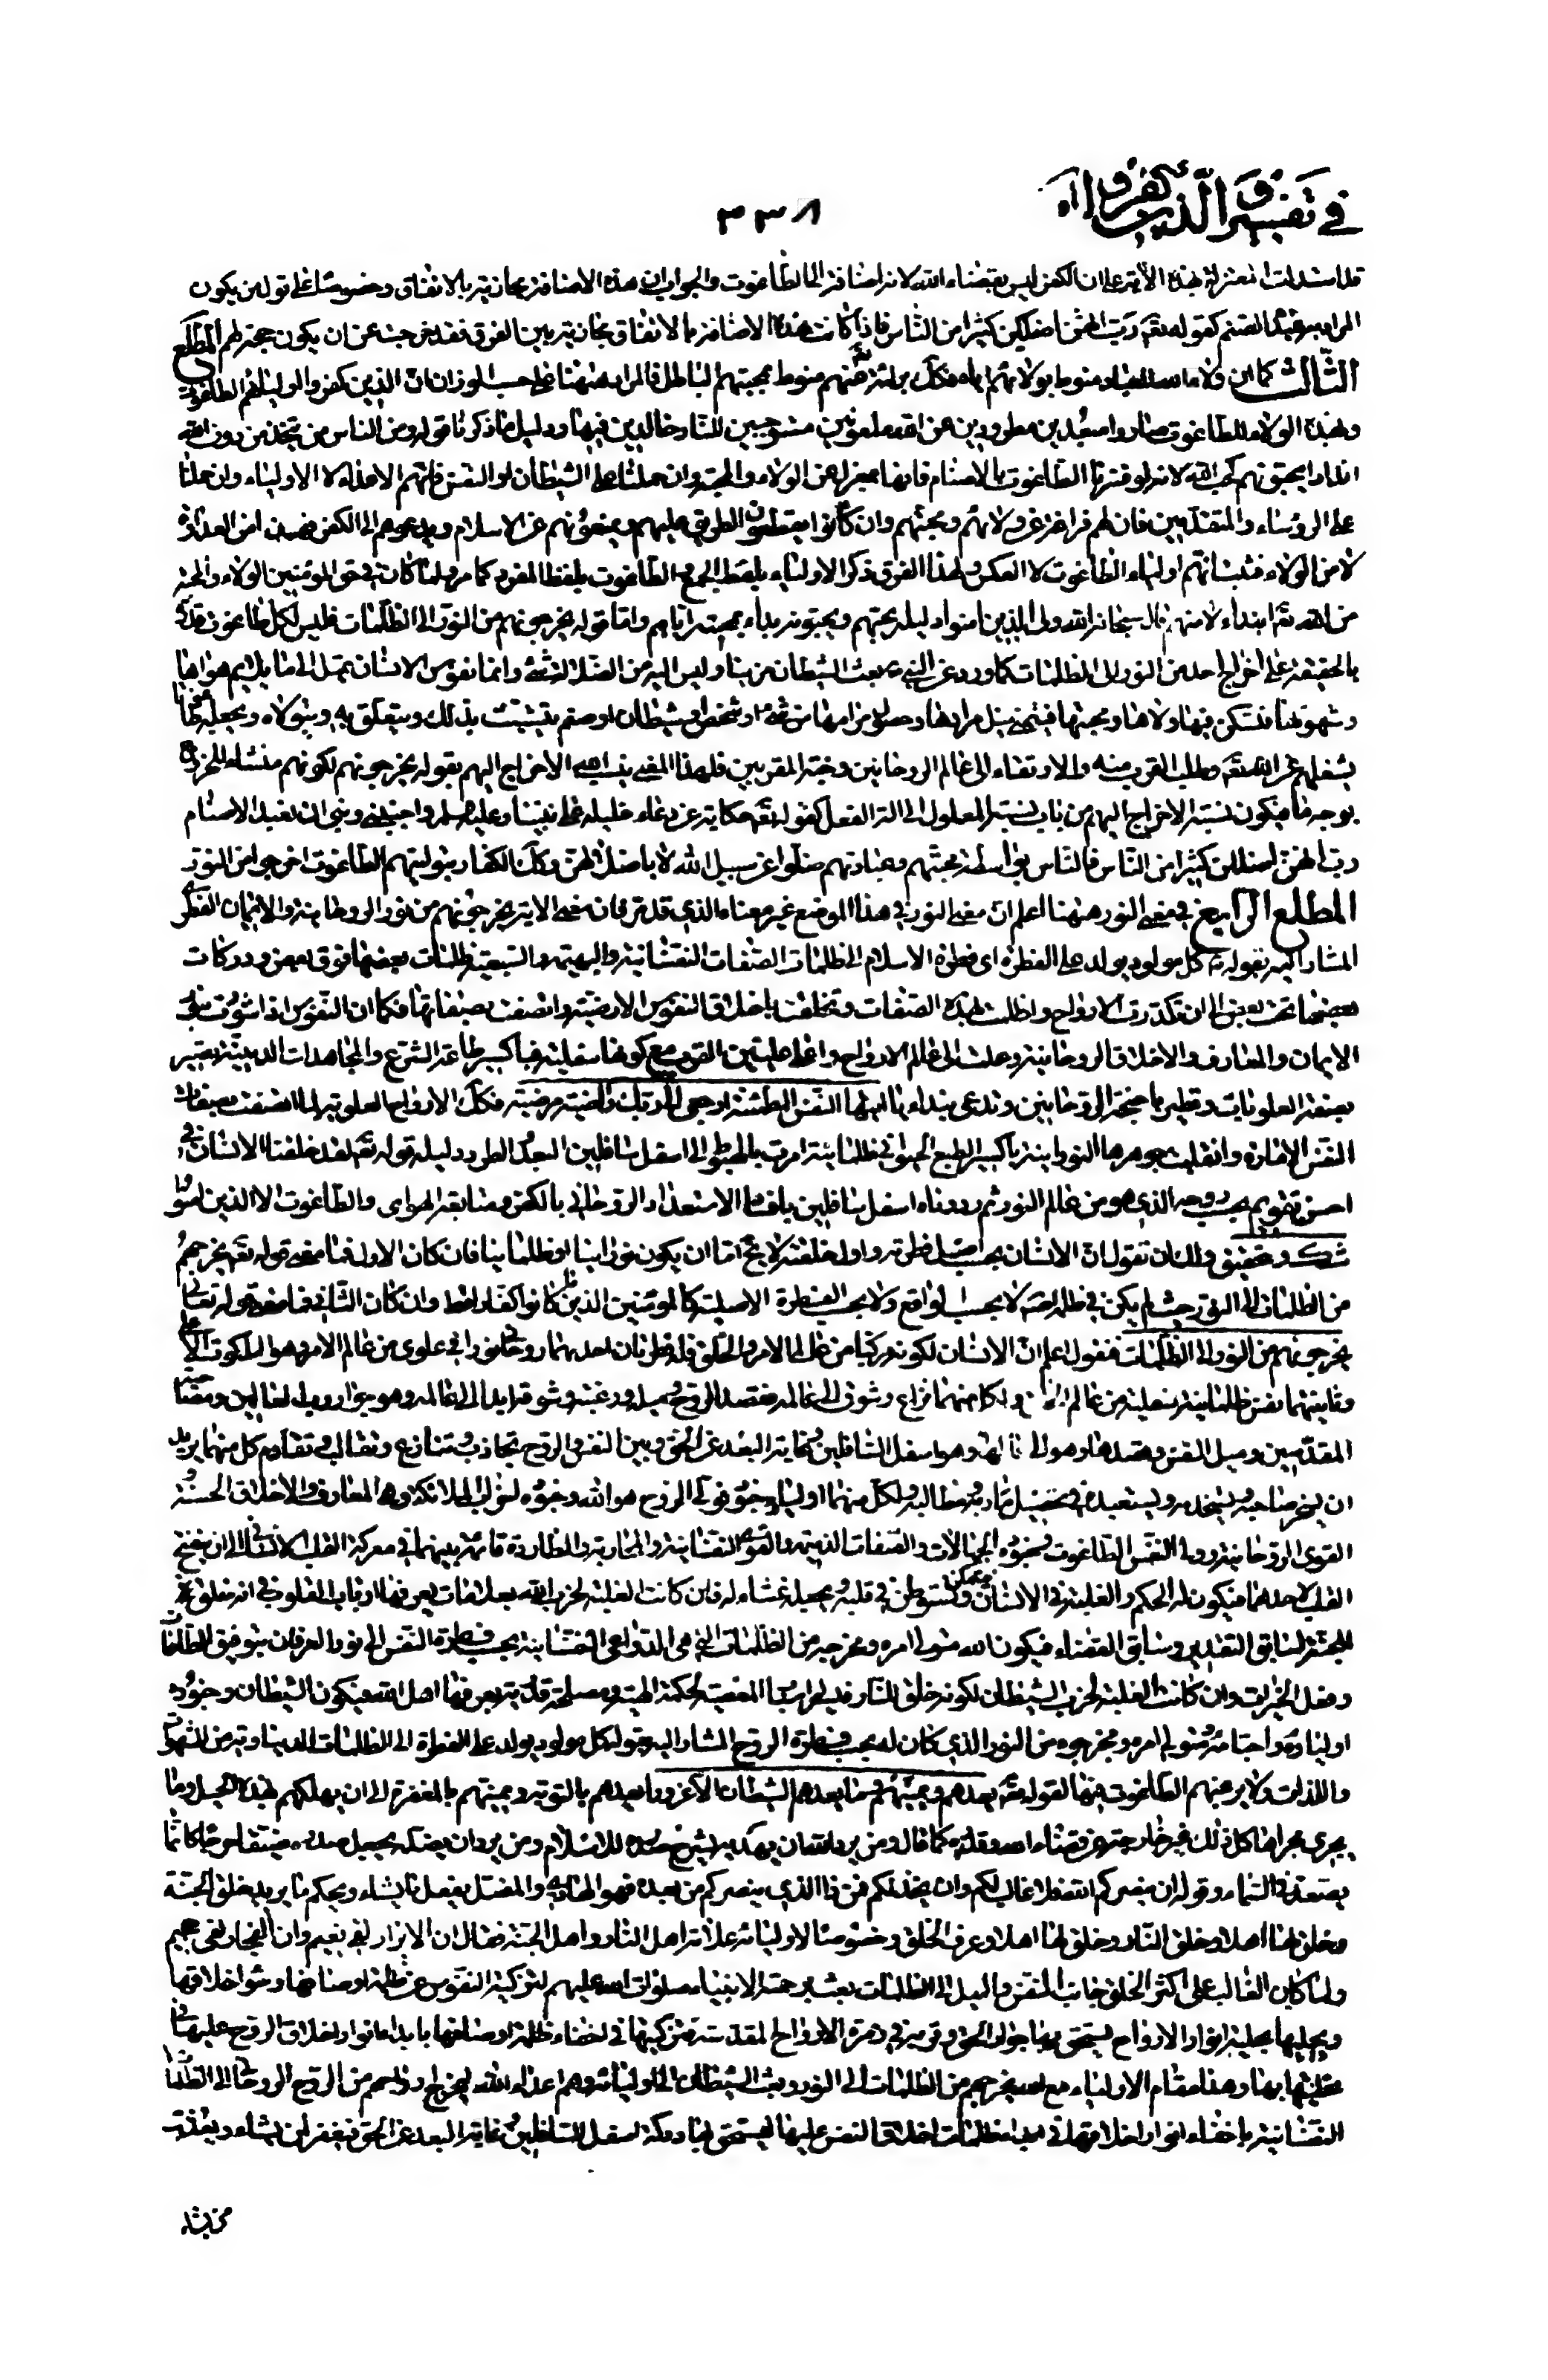 في تفسير والّذين كفروا اه
٣٣٨
قد استدلت المعتزلة بهذه الأية على ان الكفر ليس بقضاء الله لانه اضافة الى الطاغوت والجواب ان هذه الاضافة مجازية بالاتفاق وخصوصا على قول من يكون
المراد به عنده الصنم كقوله تعه رب انهن اضللن كثيرا من النّاس فاذا كانت هذه الاضافة بالاتفاق مجازية بين الفرق فقد خرجت عن ان يكون حجة لهم المطلع
الثالث كما ان ولاء الله للعباد منوط بولائهم اياه فكل برائته عنهم منوط بمحبتهم الباطل فالمراد هنها على حسب الوزان ان الذين كفروا اولياؤهم الطاغوت
ولهذه الولاء للطاغوت صاروا مبعدين مطرودين عن الله ملعونين مستوجبين للنار خالدين فيها ودليل ما ذكرنا قوله ومن الناس من يتخذ من دون الله
اندادا يحبونهم كحب الله لانه لو فسرنا الطاغوت بالاصنام فانها بمعزل عن الولاء والمحبة وان حملنا على الشيطان او النفس فانهم الاعداء لا الاولياء وان حملنا
على الرؤساء والمتقدمين فان لهم فراغة عن ولائهم ومحبتهم وان كانوا يقطعون الطريق عليهم ويمنعونهم عن الاسلام ويدعوهم الى الكفر فذلك من العداوة
لا من الولاء فثبت انهم اولياء الطاغوت لا العكس ولهذا الفرق ذكر الاولياء بلفظ الجمع والطاغوت بلفظ المفرد كما مر ولما كان في حق المؤمنين الولاء والمحبة
من الله تعه ابتداء لا منهم قال سبحانه الله ولى الذين امنوا دليله يحبهم ويحبونه بداء بمحبته اياهم واما قوله يخرجونهم من النور الى الظلمات فليس لكل طاغوت قدرة
بالحقيقة على اخراج احد من النور الى الظلمات كما ورد عن النبي بعث الشيطان مزينا وليس اليه من الضلالة شئ وانما نفوس الانسان تميل الى ما يلايم هواها
وشهوتها فتسكن فيها ولاءها ومحبتها فيتمنى نيل مرادها وحصول مرامها من شئ او شخص او شيطان او صنم يتشبث بذلك ويتعلق به ويتولاه ويجعله
يشغلهم عن الله تعه وطلب القرب منه والارتقاء الى عالم الروحانيين وخير المقربين فلهذا المعنى ينسب الاخراج اليهم بقوله يخرجونهم لكونهم منشاء للخروج
بوجه ما فيكون نسبة الاخراج اليهم من باب نسبة المعلول الى الة الفعل كقوله تعه حكاية عن دعاء خليله على نبينا وعليه السلم واجنبني وبني ان نعبد الاصنام
رب انهن اضللن كثيرا من النّاس فالنّاس بواسطة محبتهم وعبادتهم ضلوا عن سبيل الله لا باضلالهن وكل الكفار بتوليتهم الطاغوت اخرجوا من النور
المطلع الرابع في معنى النور هنها اعلم ان معنى النور في هذا الموضع غير معناه الذي قد تر فان معنى الاية يخرجونهم من نور الروحانية والايمان الفطرى
المشار اليه بقوله كل مولود يولد على الفطرة اى فطرة الاسلام الى ظلمات الصفات النفسانية والبهيمية والسبعية ظلمات بعضها فوق بعض ودركات
بعضها تحت بعض الى ان تكدرت الارواح واظلمت بهذه الصفات وتخلقت باخلاق النفوس الارضية واتصفت بصفاتها فكما ان النفوس اذا تنورت بنور
الايمان والمعارف والاخلاق الروحانية وعلت الى عالم الارواح واعلى عليين القرب مع كونها سفلية فباكسير طاعة الشرع والمجاهدات الدينية تصير
بصفة العلويات وتطير باجنحة الروحانيين وتدعى بنداء يا ايتها النفس المطمئنة ارجعى الى ربك راضية مرضية فكل الارواح العلوية لما اتصفت بصفات
النفس الامارة وانقلبت جوهرها النورانية باكسير الطبع الحيواني ظلمانية امرت بالهبوط الى اسفل سافلين البعد الطرد ودليله قوله تعه لقد خلقنا الانسان في
احسن تقويم بحسب روحه الذي هو من عالم النور ثم رددناه اسفل سافلين بافساد الاستعداد الروحاني بالكفر ومتابعة الهوى والطاغوت الا الذين امنوا
شك وتحقيق ولك ان تقول ان الانسان بحسب اصل فطرته واول خلقته لا يخ اما ان يكون نورانيا او ظلمانيا فان كان الاول فما معنى قوله تعه يخرجهم
من الظلمات الى النور حيث لم يكن في ظلمة لا بحسب الواقع ولا بحسب الفطرة الاصلية كالمؤمنين الذين ما كانوا كفارا قط وان كان الثاني فما معنى قوله تعالى
يخرجونهم من النور الى الظلمات فنقول اعلم ان الانسان لكونه مركبا من عالمى الامر والخلق فله فطرتان احديهما روحاني نوراني علوى من عالم الامر وهو الملكوت الاعلى
وثانيتهما نفس ظلمانية سفلية من عالم الخلق ولكل منهما نزاع وشوق الى عالمه فقصد الروح وميله ورغبته وشوقه ابدا الى عالمه وهو جوار رب العالمين
المقدسين وميل النفس وقصدها وهو الى عالمها وهو اسفل السافلين وغاية البعد عن الحق وبين النفس والروح تجاذب وتنازع وتغالب وتقاوم كل منهما يريد
ان يسخر صاحبه ويستخدمه ويستعبده في تحصيل مأربه ومطالبه ولكل منهما اولياء وجنود فولى الروح هو الله وجنوده لشرايف الملائكة وهى المعارف والاخلاق الحسنة
القوى الروحانية وولى النفس الطاغوت وجنوده الجهالات والصفات الذميمة والقوى النفسانية والمحاربة والمطاردة قائمة بينهما في معركة القلب الانساني الى ان يفتح
القلب لاحدهما فيكون له الحكم والغلبة في الانسان ويتمكن ويستوطن في قلبه ويجعله غشاء له فان كانت الغلبة لحزب الله
للجنة لسابق التقدير وسابق القضاء فيكون الله متولى امره ومخرجه من الظلمات التي هي الدواعى النفسانية بحسب فطرة النفس الى نور العرفان بتوفيق الطاعات
وفعل الخيرات وان كانت الغلبة لحزب الشيطان لكونه خلق للنار لحكمة الهية ومصلحة قدرية يعرفها اهل الله فيكون الشيطان وجنوده
اولياؤه واحباؤه متولى امره ومخرجوه من النور الذي كان له بحسب فطرة الروح المشار اليه بقوله كل مولود يولد على الفطرة الى الظلمات الدنياوية من الشهوات
واللذات ولا يرعبهم الطاغوت فيها لقوله تعه يعدهم ويمنيهم وما يعدهم الشيطان الا غرورا يعدهم بالتوبة ويمنيهم بالمغفرة الى ان يهلكهم بهذه الحيل وما
يجرى مجراها كل ذلك غير خارجة عن قضاء الله وقدره كما قال ومن يرد الله ان يهديه يشرح صدره للاسلام ومن يرد ان يضله يجعل صدره ضيقا حرجا كانما
يصعد في السّماء وقوله ان ينصركم الله فلا غالب لكم وان يخذلكم فمن ذا الذي ينصركم من بعده فهو الهادى والمضل يفعل ما يشاء ويحكم ما يريد خلق الجنة
وخلق لها اهلا وخلق النار وخلق لها اهلا وعرف الخلق وخصوصا لاوليائه علامة اهل النار واهل الجنة فقال ان الابرار لفى نعيم وان الفجار لفى جحيم
ولما كان الغالب على اكثر الخلق جانب النفس والميل الى الظلمات بعث برحمته الانبياء صلوات الله عليهم لتزكية النفوس عن ظلمة اوصافها وسوء اخلاقها
ويحليها بحلية انوار الارواح يستحق بها جوار الحق وقربه في زمرة الارواح المقدسة فتزكيتها في اخفاء ظلمة اوصافها بابداء انوار اخلاق الروح عليها في
تحليتها بها وهذا مقام الاولياء مع الله يخرجهم من الظلمات الى النور وبعث الشيطان الى اوليائه وهم اعداء الله ليخرج ارواحهم من الروح الروحاني الى الظلمات
النفسانية باخفاء انوار اخلاقها في ابداء ظلمات اخلاق النفس عليها ليستحق بها دركة اسفل السافلين وغاية البعد عن الحق فيغفر لمن يشاء ويعذب
من يشاء